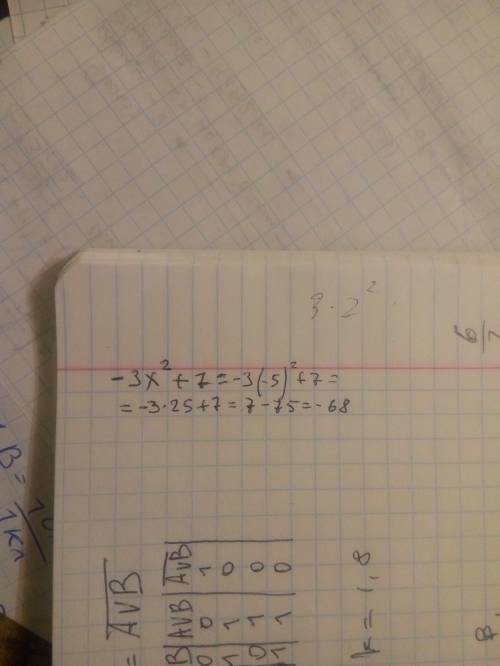 3·2²
-3x²+7=-3(-5)²+7=
=-3·25+7=7-75=-68
6
B=
1Кл
= A̅ ̅V̅ ̅B̅
B | AVB | A̅ ̅V̅ ̅B̅
0 | 0 | 1
1 | 1 | 0
0 | 1 | 0
1 | 1 | 0
k=1,8